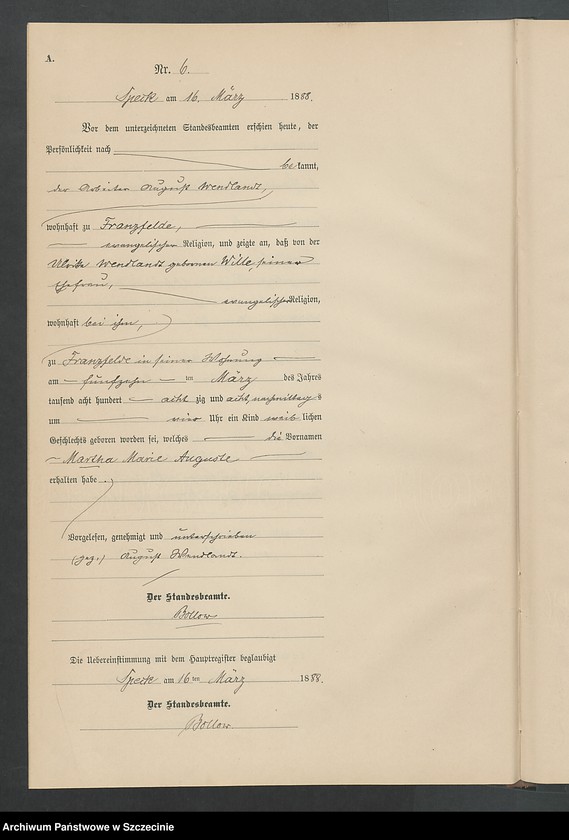 A.
Nr. 6.
Speck am 16. März 1888.
Vor dem unterzeichneten Standesbeamten erschien heute, der
Persönlichkeit nach
bekannt,
der Arbeiter August Wendlandt,
wohnhaft zu Franzfelde,
evangelischer Religion, und zeigte an, daß von der
Ulrike Wendlandt gebornen Wille, seiner
Ehefrau,
evangelischer Religion,
wohnhaft bei ihm,
zu Franzfelde in seiner Wohnung
am fünfzehn ten März des Jahres
tausend acht hundert acht zig und acht, nachmittags
um vier Uhr ein Kind weiblichen
Geschlechts geboren worden sei, welches die Vornamen
Martha Marie Auguste
erhalten habe.
Vorgelesen, genehmigt und unterschrieben
(gez.) August Wendlandt.
Der Standesbeamte.
Bollow
Die Uebereinstimmung mit dem Hauptregister beglaubigt
Speck am 16ten März 1888.
Der Standesbeamte.
Bollow.
Archiwum Państwowe w Szczecinie